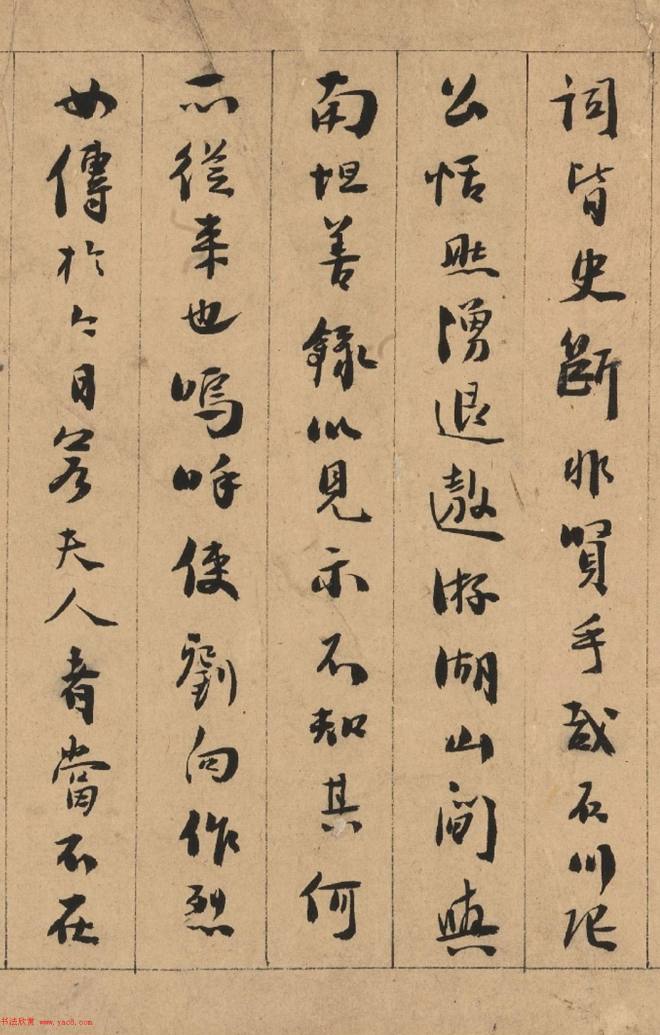 詞皆史斷非賢乎哉石川張
公恬然湧退遨游湖山間與
南坦善録以見示不知其何
所從来也嗚呼使劉向作烈
女傳於今日若夫人者當不在
书法欣赏 www.yac8.com